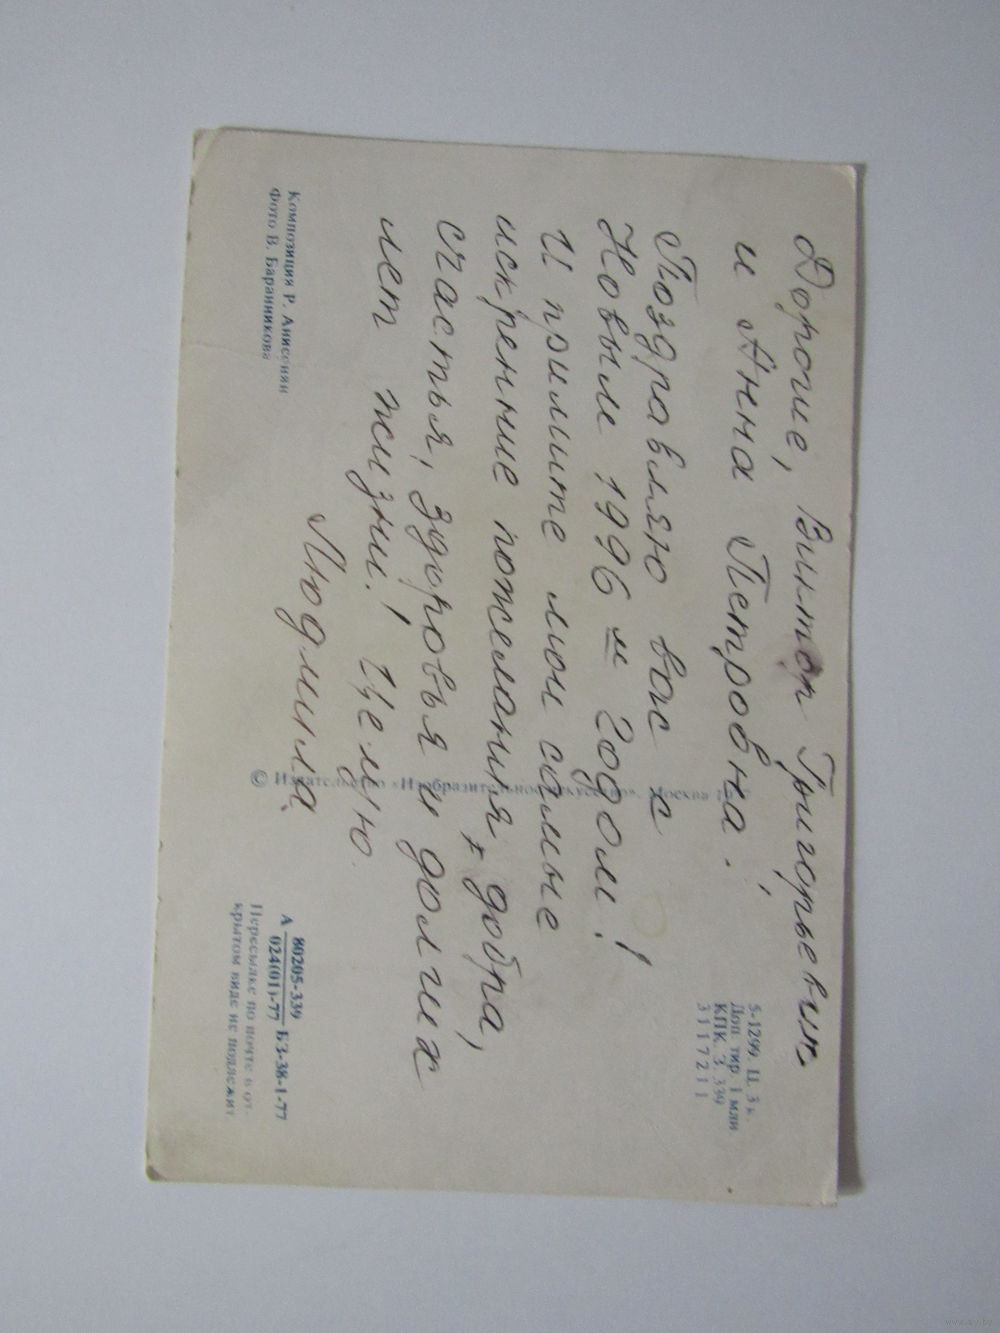 Дорогие, Виктор Григорьевич
и Анна Петровна!
Поздравляю вас с
Новым 1996 м годом!
И примите мои самые
искренние пожелания, добра,
счастья, здоровья и долгих
лет жизни! Целую.
Людмила
5-1299. Ц. 3 к.
Доп. тир. 1 млн
КПК. З. 339
3117211
© Издательство «Изобразительное искусство». Москва
Композиция Р. Анисонян
Фото В. Баранникова
А 80205-339 БЗ-38-1-77
024(01)-77
Пересылке по почте в от-
крытом виде не подлежит.